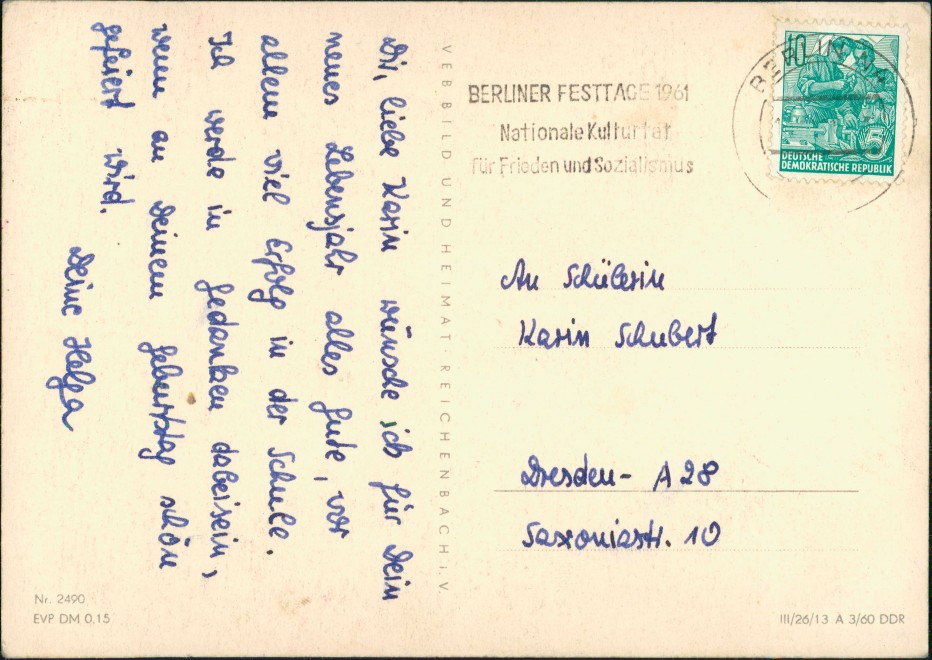 Dir, liebe Karin wünsche ich für Dein
neues Lebensjahr alles Gute, vor
allem viel Erfolg in der Schule.
Ich werde in Gedanken dabeisein,
wenn an Deinem Geburtstag schön
gefeiert wird.
Deine Helga
VEB BILD UND HEIMAT · REICHENBACH i. V.
BERLINER FESTTAGE 1961
Nationale Kulturtat
für Frieden und Sozialismus
BERLIN
10
5
DEUTSCHE
DEMOKRATISCHE REPUBLIK
An Schülerin
Karin Schubert
Dresden- A 28
Saxoniastr. 10
Nr. 2490
EVP DM 0,15
III/26/13 A 3/60 DDR